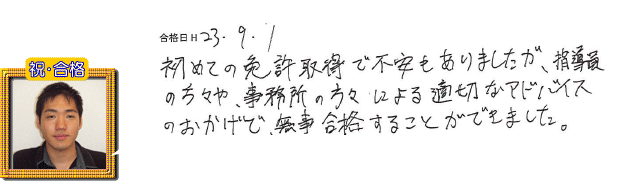 合格日 H 23. 9. 1
祝・合格
初めての免許取得で不安もありましたが、指導員
の方々や、事務所の方々による適切なアドバイス
のおかげで、無事合格することができました。